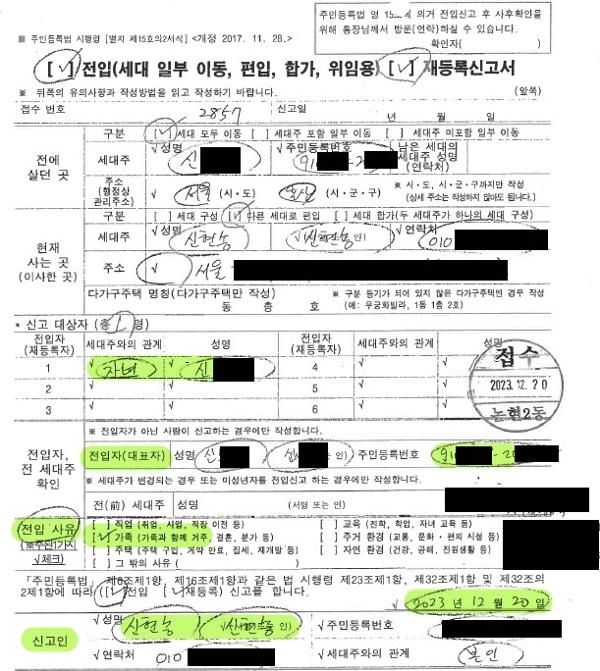 주민등록법 영 15 의거 전입신고 후 사후확인을
위해 통장님께서 방문(연락)하실 수 있습니다.
확인자( )
■ 주민등록법 시행령 [별지 제15호의2서식] <개정 2017. 11. 28.>
[√] 전입(세대 일부 이동, 편입, 합가, 위임용) [√] 재등록신고서
※ 뒤쪽의 유의사항과 작성방법을 읽고 작성하기 바랍니다. (앞쪽)
접수 번호 2857 신고일 년 월 일
전에 살던 곳
구분 [√] 세대 모두 이동 [ ] 세대주 포함 일부 이동 [ ] 세대주 미포함 일부 이동
세대주 √성명 신 √주민등록번호 91 -2 남은 세대의 세대주 성명 (연락처)
주소 (행정상 관리주소) 서울 (시·도) 용산 (시·군·구) ※ 시·도, 시·군·구까지만 작성 (상세 주소는 작성하지 않아도 됩니다.)
현재 사는 곳 (이사한 곳)
구분 [ ] 세대 구성 [√] 다른 세대로 편입 [ ] 세대 합가(두 세대가 하나의 세대 구성)
세대주 √성명 신현송 √(신현송 인) √연락처 010
주소 √ 서울
다가구주택 명칭(다가구주택만 작성) 동 층 호 ※ 구분 등기가 되어 있지 않은 다가구주택인 경우 작성 (예: 무궁화빌라, 1동 1층 2호)
* 신고 대상자 (총 1 명)
전입자 (재등록자) 세대주와의 관계 성명 전입자 (재등록자) 세대주와의 관계 성명
1 √ 자녀 √ 신 4 √ √
2 √ √ 5 √ √
3 √ √ 6 √ √
접수
2023. 12. 20
논현2동
전입자, 전 세대주 확인
※ 전입자가 아닌 사람이 신고하는 경우에만 작성합니다.
전입자(대표자) 성명 신 (신 인) 주민등록번호 91 -20
※ 세대주가 변경되는 경우 또는 미성년자를 전입신고 하는 경우에만 작성합니다.
전(前) 세대주 성명 (서명 또는 인)
전입 사유 (※주된1가지 √체크)
[ ] 직업 (취업, 사업, 직장 이전 등) [ ] 교육 (진학, 학업, 자녀 교육 등)
[√] 가족 (가족과 함께 거주, 결혼, 분가 등) [ ] 주거 환경 (교통, 문화·편의 시설 등)
[ ] 주택 (주택 구입, 계약 만료, 집세, 재개발 등) [ ] 자연 환경 (건강, 공해, 전원생활 등)
[ ] 그 밖의 사유( )
「주민등록법」 제6조제1항, 제16조제1항과 같은 법 시행령 제23조제1항, 제32조제1항 및 제32조의
2제1항에 따라 ( [√] 전입 [ ] 재등록) 신고를 합니다.
√ 2023 년 12 월 20 일
신고인 √성명 신현송 √(신현송 인) √주민등록번호
√연락처 010 본인